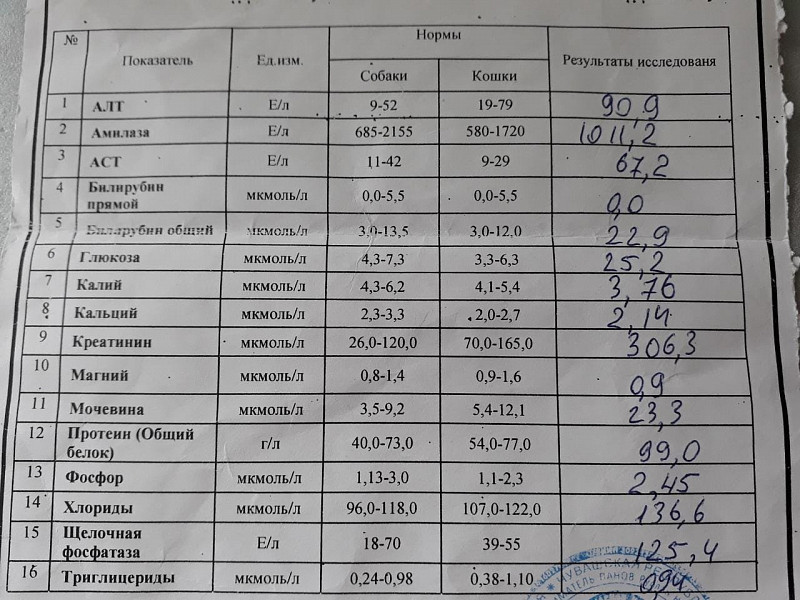 № Показатель Ед.изм. Нормы Результаты исследованя
Собаки Кошки
1 АЛТ Е/л 9-52 19-79 90,9
2 Амилаза Е/л 685-2155 580-1720 1011,2
3 АСТ Е/л 11-42 9-29 67,2
4 Билирубин прямой мкмоль/л 0,0-5,5 0,0-5,5 0,0
5 Билирубин общий мкмоль/л 3,0-13,5 3,0-12,0 22,9
6 Глюкоза мкмоль/л 4,3-7,3 3,3-6,3 25,2
7 Калий мкмоль/л 4,3-6,2 4,1-5,4 3,76
8 Кальций мкмоль/л 2,3-3,3 2,0-2,7 2,14
9 Креатинин мкмоль/л 26,0-120,0 70,0-165,0 306,3
10 Магний мкмоль/л 0,8-1,4 0,9-1,6 0,9
11 Мочевина мкмоль/л 3,5-9,2 5,4-12,1 23,3
12 Протеин (Общий белок) г/л 40,0-73,0 54,0-77,0 99,0
13 Фосфор мкмоль/л 1,13-3,0 1,1-2,3 2,45
14 Хлориды мкмоль/л 96,0-118,0 107,0-122,0 136,6
15 Щелочная фосфатаза Е/л 18-70 39-55 125,4
16 Триглицериды мкмоль/л 0,24-0,98 0,38-1,10 0,94
ЧУВАШСКАЯ
ПАНОВ